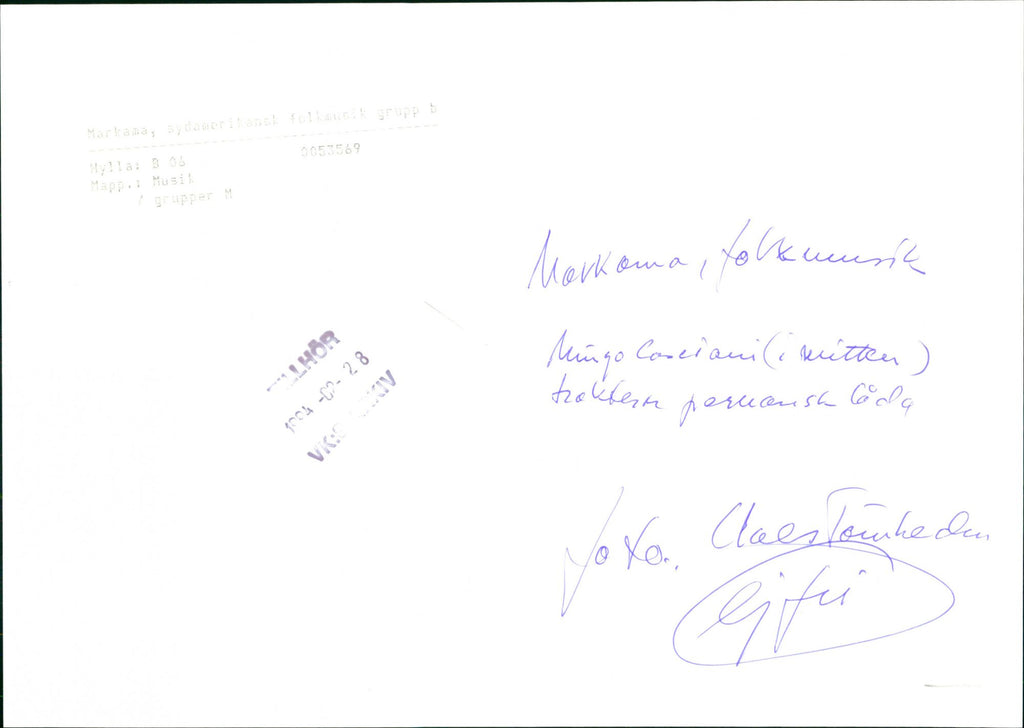 Markama, sydamerikansk folkmusik grupp b
Hylla: B 06 0053569
Mapp.: Musik
/ grupper M
TILLHÖR
1994 -02- 28
VK:S ARKIV
Markama, folkmusik
Mingo Casciani (i mitten)
trakterar peruansk låda
foto. Claes Törnheden
Ej fri